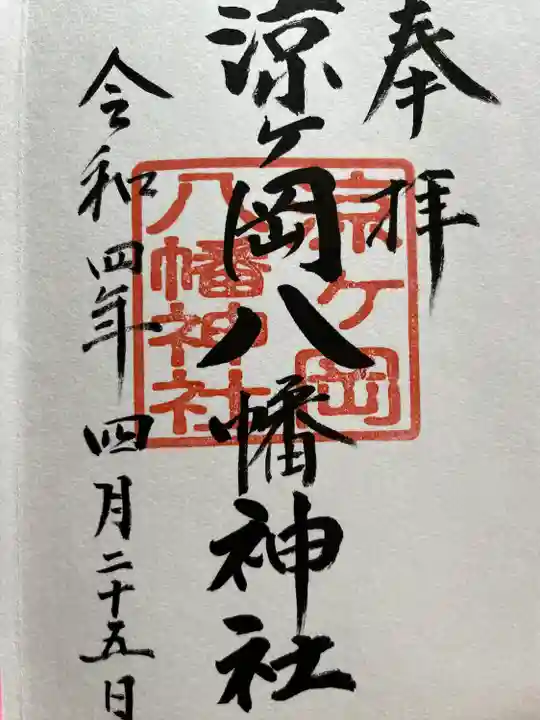 奉拝
涼ヶ岡八幡神社
涼ヶ岡
八幡神社
令和四年四月二十五日